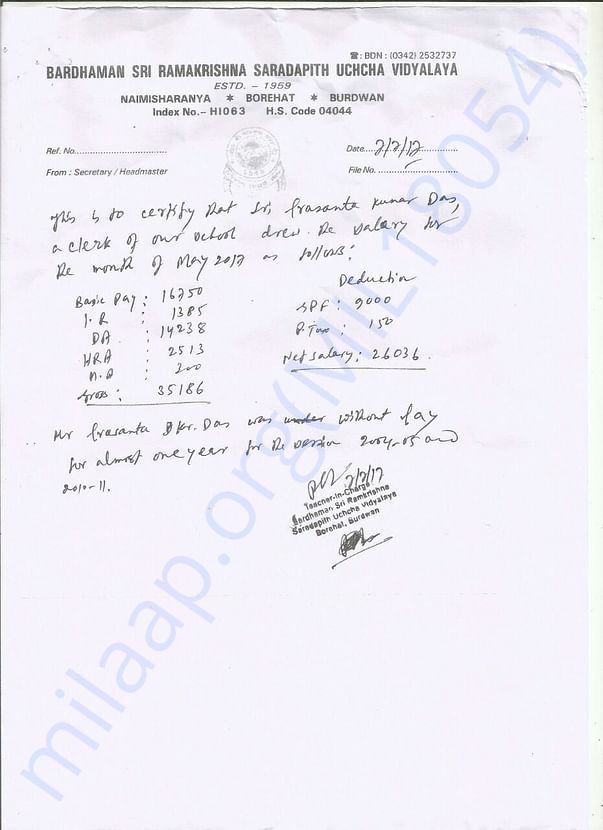 ☎: BDN : (0342) 2532737
BARDHAMAN SRI RAMAKRISHNA SARADAPITH UCHCHA VIDYALAYA
ESTD. – 1959
NAIMISHARANYA * BOREHAT * BURDWAN
Index No.– HI063 H.S. Code 04044
Ref. No.
Date 7/7/17
From : Secretary / Headmaster
File No.
This is to certify that Sri Prasanta Kumar Das,
a clerk of our school drew the salary for
the month of May 2017 as follows:
Basic Pay : 16750
I.R : 1385
DA : 14238
HRA : 2513
M.A : 300
Gross : 35186
Deduction
GPF : 9000
P.Tax : 150
Net salary : 26036.
Mr Prasanta Kr. Das was without pay
for almost one year for the session 2004-05 and
2010-11.
7/7/17
Teacher-in-Charge
Bardhaman Sri Ramkrishna
Saradapith Uchcha Vidyalaya
Borehat, Burdwan
milaap.org(MIL18054)